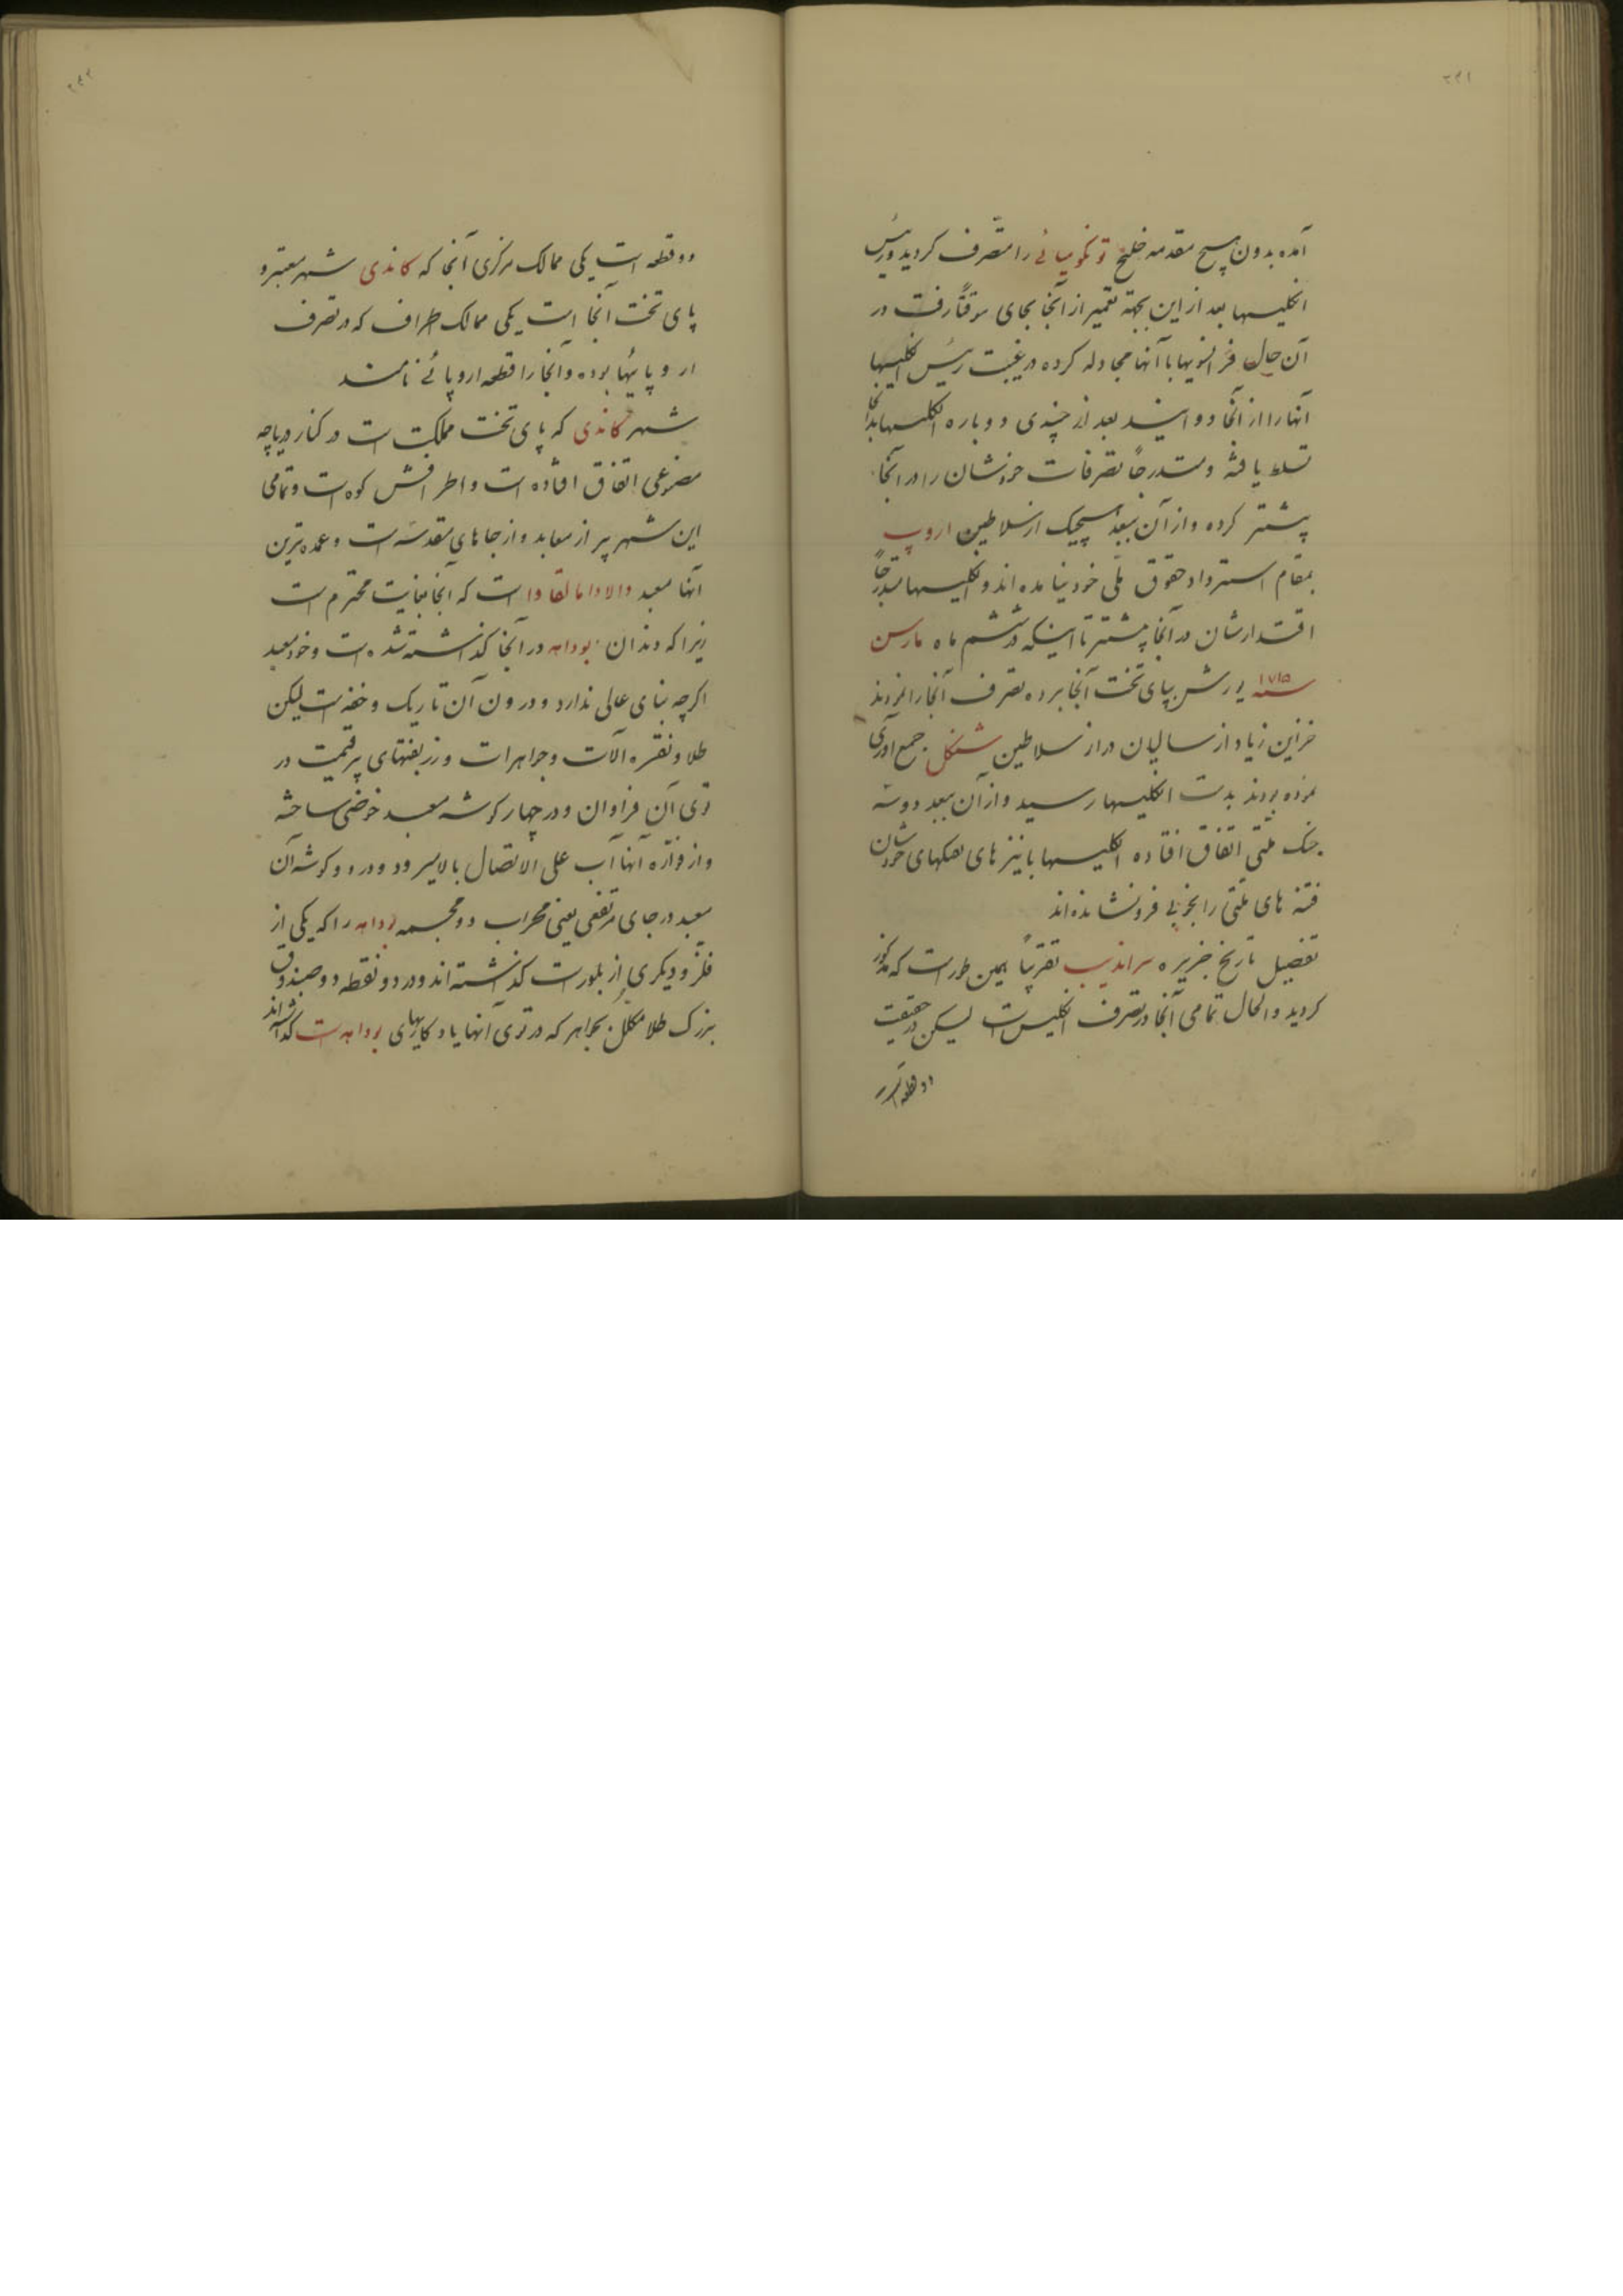 ۲۴۱
آمده بدون هیچ مقدمه خلیج تونکومیائی را متصرف کردید و رئیس
انکلیسها بعد از این بجهة تعمیر از آنجا بجای موقتاً رفت در
آن حال فرانسویها با آنها مجادله کرده در غیبت رئیس انکلیسها
آنها را از آنجا دوانیند بعد از چندی دوباره انکلیسها بدانجا
تسلط یافته و متدرجاً تصرفات خودشان را در آنجا
پیشتر کرده و از آن ببعد هیچیک از سلاطین اروپ
بمقام استرداد حقوق ملی خود نیامده اند و انکلیسها متدرجاً
اقتدارشان در آنجا پیشتر تا اینکه در ششم ماه مارس
سنه ۱۷۱۵ یورش بپای تخت آنجا برده تصرف آنجا را نمودند
خزاین زیاد از سالیان دراز سلاطین شنکل جمع آوری
نموده بودند بدست انکلیسها رسید و از آن ببعد دو سه
جنک ملتی اتفاق افتاده انکلیسها با نیزه های تفنکهای خودشان
فتنه های ملتی را بخوبی فرونشانده اند
تفضیل تاریخ جزیره سراندیب تقریباً همین طور است که مذکور
کردید و الحال تمامی آنجا در تصرف انکلیس است لیکن در حقیقت
دو قطعه است
۲۴۲
دو قطعه است یکی ممالک مرکزی آنجا که کاندی شهر معتبر و
پای تخت آنجا است یکی ممالک اطراف که در تصرف
اروپائیها بوده و آنجا را قطعه اروپائی نامند
شهر کاندی که پای تخت مملکت است در کنار دریاچه
مصنوعی اتفاق افتاده است و اطرافش کوه است و تمامی
این شهر پر از معابد و از جاهای مقدسه است و عمده ترین
آنها معبد والادامالقاوا است که آنجا بغایت محترم است
زیرا که دندان بوداهه در آنجا کذاشته شده است و خود معبد
اکرچه بنای عالی ندارد و درون آن تاریک و خفه است لیکن
طلا و نقره آلات و جواهرات و زربفتهای پرقیمت در
توی آن فراوان و در چهار کوشه معبد حوضی ساخته
و از فواره آنها آب علی الاتصال بالا میرود و در دو کوشه آن
معبد در جای مرتفعی یعنی محراب دو مجسمه بوداهه را که یکی از
فلز و دیکری از بلور است کذاشته اند و در دو نقطه دو صندوق
بزرک طلا مکلل بجواهر که در توی آنها یادکاریهای بوداهه است کذاشته اند